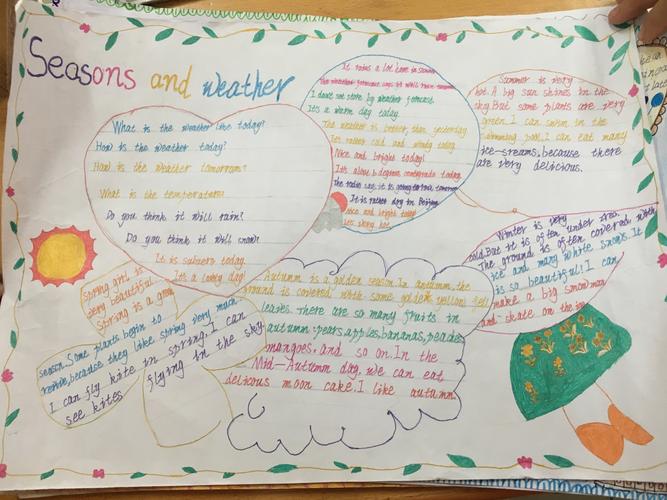 Seasons and weather
What is the weather like today?
How is the weather today?
How is the weather tomorrow?
What is the temperature?
Do you think it will rain?
Do you think it will snow?
It is today.
It's a lovely day!
It rains a lot here in
The weather forecast says it will have
I don't store by weather forecast.
It's a warm day today.
The weather is better than yesterday
It's rather cold and windy today
Nice and bright today!
It's about 6 degrees centigrade today.
the radio say it is going to tomorrow
It is rather day in Beijing
nice and bright today
Summer is very
hot. A big sun shines on the
sky. But some plants are very
green. I can swim in the
swimming pool. I can eat many
ice-streams, because there
are very delicious.
Winter is very
cold. But it is often under zero.
The ground is often covered with
ice and many white snows. It
is so beautiful! I can
make a big snow man
and skate on the ice
Spring girl is
very beautiful
Spring is a
season. Some plants begin to
revive, because they like spring very much.
I can fly kite in spring. I can
see kites flying in the sky.
Autumn is a golden season. In autumn, the
ground is covered with some golden yellow
leaves. There are so many fruits in
autumn: pears, apples, bananas, peaches
mangoes, and so on. In the
Mid-Autumn day, we can eat
delicious moon cake. I like autumn